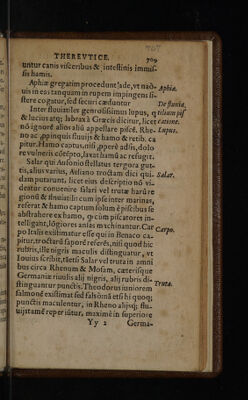 THEREVTICE. 709
untur canis visceribus & intestinis immis-
sis hamis.
Aphiæ gregatim procedunt ade, vt nad-
uis in eas tanquam in rupem impingens si- Aphia.
stere cogatur, sed securi cæduntur
Inter fluuiales generosissimus lupus, De fluuia,
& lucius atq; labrax à Græcis dicitur, licet catione.
nō ignorē alios aliū appellare piscē. Rhe- Lupus.
no ac hamo & retib. ca
pitur. Hamo captus, nisi properè adsis, dolo
re vulneris cōfecto, laxat hamū ac refugit.
Salar qui Ausonio stellatus tergora gut-
tis, alius varius, Aeliano troctam dici qui- Salar.
dam putarunt. licet eius descriptio nō vi-
deatur conuenire salari vel trutæ harū re
gionū & fluuiatili cum ipse inter marinas,
referat & hamo captum solum è piscibus se
abstrahere ex hamo, q; cùm piscatores in-
telligant, lōgiores ansas machinantur. Car Carpo.
po Italis existimatur esse qui in Benaco ca-
pitur, troctarū saporē referēs, nisi quod hic
rubris, ille nigris maculis distinguatur, vt
Iouius scribit, tāetsi Salar vel truta in amni
bus circa Rhenum & Mosam, cæterisque
Germaniæ riuulis alij nigris, alij rubris di-
stinguantur punctis. Theodorus iuniorem Truta.
salmonē existimat sed falsō nā etsi hi quoq;
punctis maculentur, in Rheno alijsq; flu-
uijs tamē reperiūtur, maximè in superiore
Y y 2 Germa-